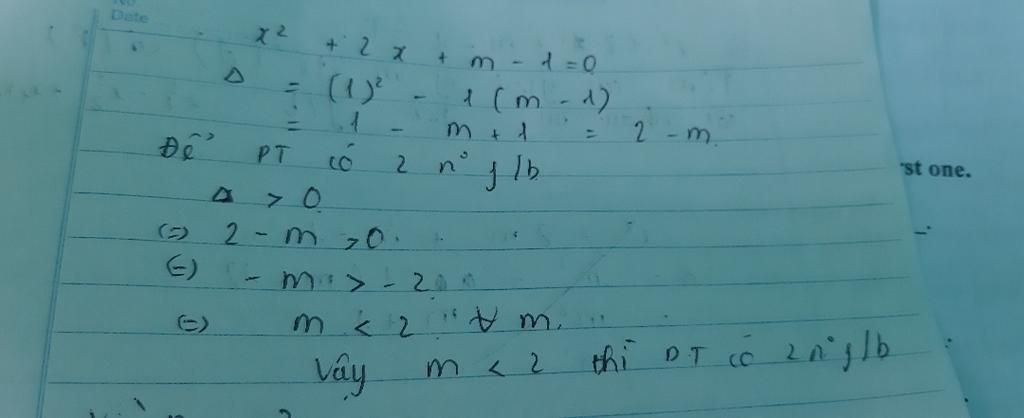 Date
x² + 2x + m - 1 = 0
Δ = (1)² - 1(m - 1)
= 1 - m + 1 = 2 - m
Để PT có 2 n° f/b
Δ > 0
(=) 2 - m > 0.
(=) - m > - 2
(=) m < 2 ∀ m.
Vậy m < 2 thì PT có 2 n° f/b
rst one.